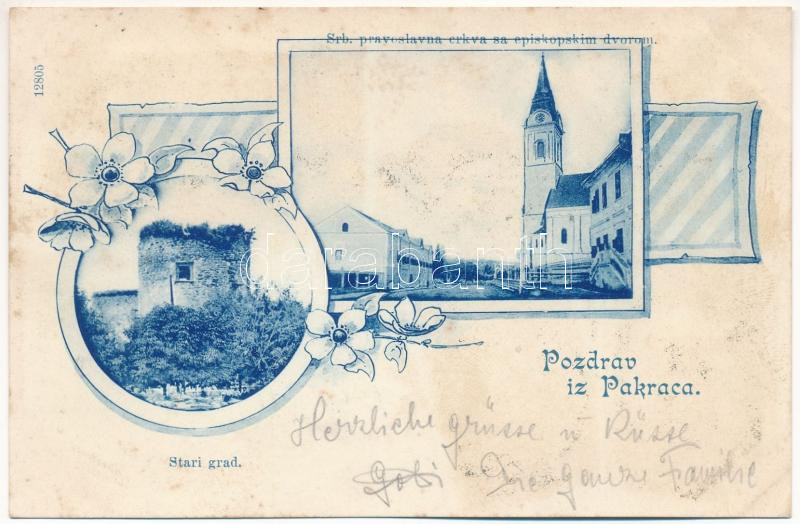 Srb. pravoslavna crkva sa episkopskim dvorom.
12805
darabanth
Pozdrav
iz Pakraca.
Herzliche grüsse u Küsse
Stari grad.
Die ganze Familie